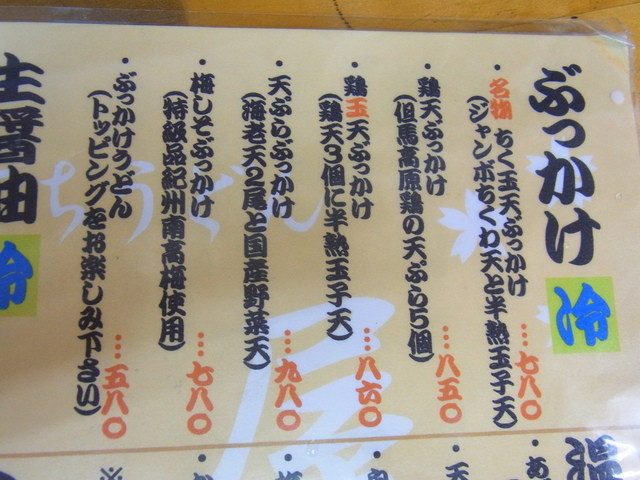 ぶっかけ 冷
・名物 ちく玉天ぶっかけ
(ジャンボちくわ天と半熟玉子天) …七八〇
・鶏天ぶっかけ
(但馬高原鶏の天ぷら5個) …八五〇
・鶏玉天ぶっかけ
(鶏天3個に半熟玉子天) …八六〇
・天ぷらぶっかけ
(海老天2尾と国産野菜天) …九八〇
・梅しそぶっかけ
(特級品紀州南高梅使用) …七八〇
・ぶっかけうどん
(トッピングをお楽しみ下さい) …五八〇
生醤油 冷
屋
温
・あ
・天
※